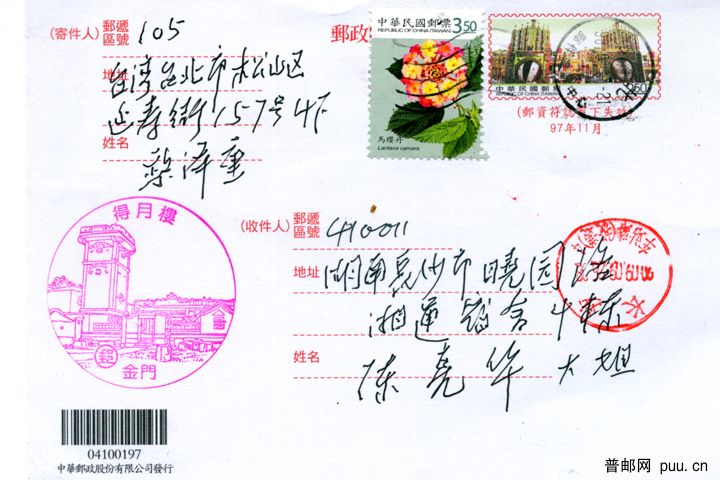 (寄件人) 郵遞區號 105
郵政
中華民國郵票 3.50
REPUBLIC OF CHINA (TAIWAN)
馬纓丹
Lantana camara
中華民國郵票
REPUBLIC OF CHINA (TAIWAN)
(郵資符誌剪下失效)
97年11月
地址 台湾台北市松山区
延寿街157号4F
姓名
得月樓
郵
金門
(收件人) 郵遞區號 410011
地址 湖南長沙市曉园
湘蓮
姓名 陈亮华大姐
04100197
中華郵政股份有限公司發行
普邮网 puu.cn